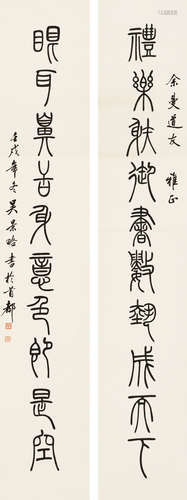 余曼道友 雅正
禮樂射御書數藝成而下
眼耳鼻舌身意色即是空
壬戌年冬吴景略書於首都